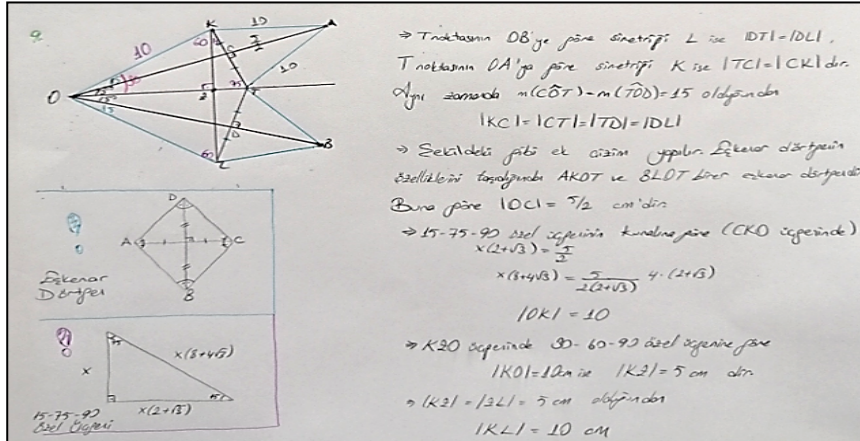 K 10 A
60
10
C
5/2
10
O
15
2
75 T
15
D
60
L
B
→ T noktasının OB'ye göre simetriği L ise |DT|=|DL|,
T noktasının OA'ya göre simetriği K ise |TC|=|CK| dır.
Aynı zamanda m(COT)=m(TOD)=15 olduğundan
|KC|=|CT|=|TD|=|DL|
→ Şekildeki gibi ek çizim yapılır. Eşkenar dörtgenin
özelliklerini taşıdığından AKOT ve BLOT birer eşkenar dörtgendir
Buna göre |OC|= 5/2 cm'dir.
→ 15-75-90 özel üçgeninin kuralına göre (CKO üçgeninde)
x(2+√3) = 5/2
x(8+4√3) = 5/2(2+√3) 4·(2+√3)
|OK| = 10
→ K2O üçgeninde 30-60-90 özel üçgenine göre
|KO|=10cm ise |K2|= 5 cm dir.
→ |K2|=|2L|= 5 cm olduğundan
|KL| = 10 cm
D
A C
B
Eşkenar
Dörtgen
x
x(8+4√3)
75
15
x(2+√3)
15-75-90
Özel Üçgeni